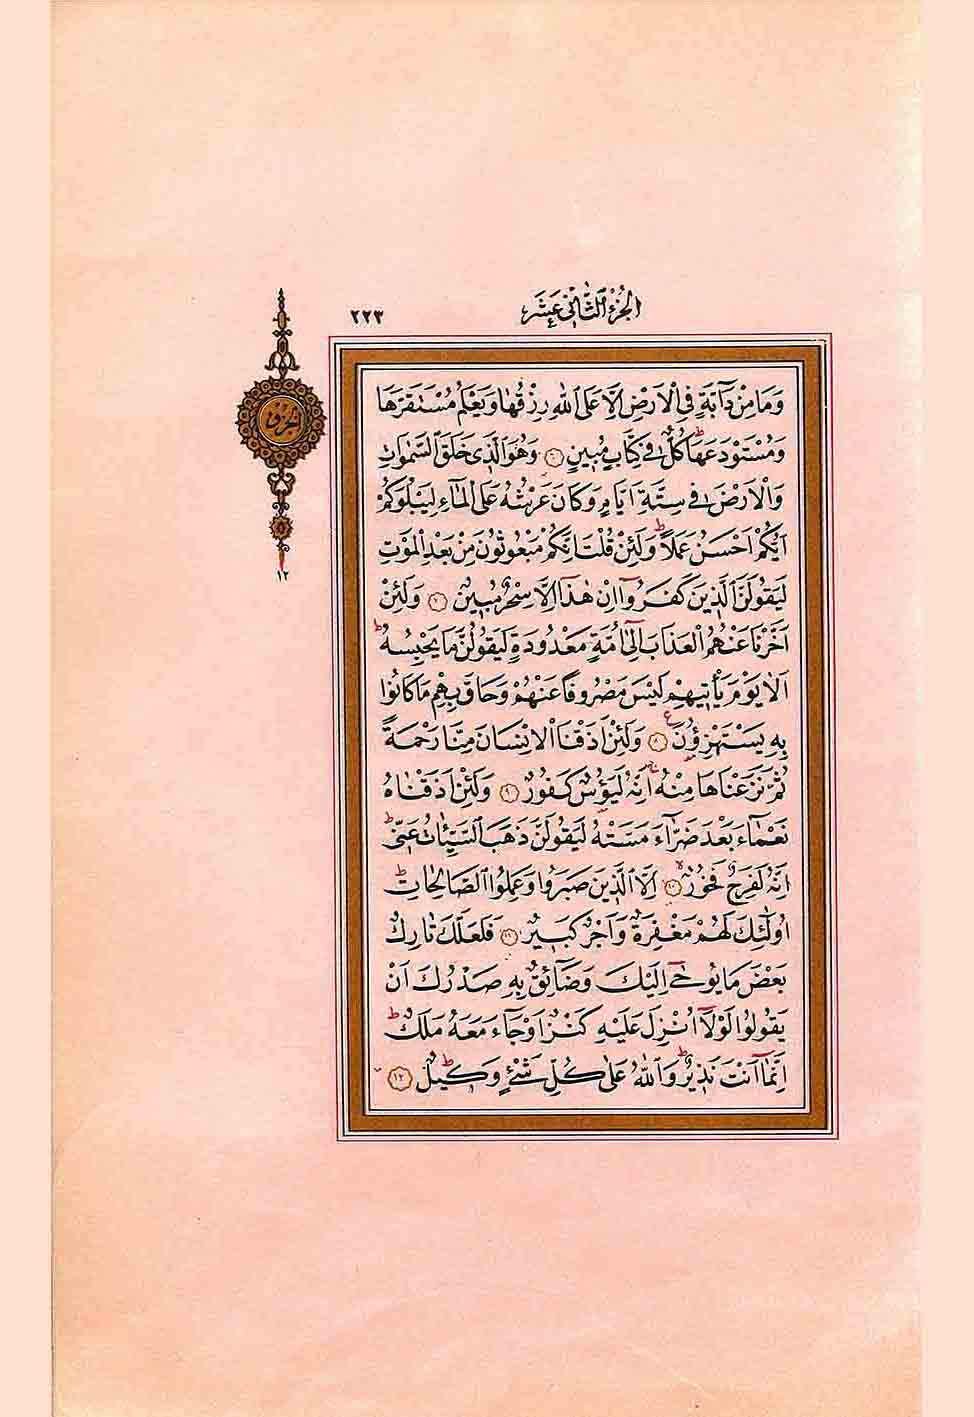 الجزء الثاني عشر
٢٢٣
الجزء
١٢
وَمَا مِنْ دَٓابَّةٍ فِي الْاَرْضِ اِلَّا عَلَى اللّٰهِ رِزْقُهَا وَيَعْلَمُ مُسْتَقَرَّهَا
وَمُسْتَوْدَعَهَاۜ كُلٌّ ف۪ي كِتَابٍ مُب۪ينٍ ٦ وَهُوَ الَّذ۪ي خَلَقَ السَّمٰوَاتِ
وَالْاَرْضَ ف۪ي سِتَّةِ اَيَّامٍ وَكَانَ عَرْشُهُ عَلَى الْمَٓاءِ لِيَبْلُوَكُمْ
اَيُّكُمْ اَحْسَنُ عَمَلًاۜ وَلَئِنْ قُلْتَ اِنَّكُمْ مَبْعُوثُونَ مِنْ بَعْدِ الْمَوْتِ
لَيَقُولَنَّ الَّذ۪ينَ كَفَرُٓوا اِنْ هٰذَٓا اِلَّا سِحْرٌ مُب۪ينٌ ٧ وَلَئِنْ
اَخَّرْنَا عَنْهُمُ الْعَذَابَ اِلٰٓى اُمَّةٍ مَعْدُودَةٍ لَيَقُولُنَّ مَا يَحْبِسُهُۜ
اَلَا يَوْمَ يَأْت۪يهِمْ لَيْسَ مَصْرُوفًا عَنْهُمْ وَحَاقَ بِهِمْ مَا كَانُوا
بِه۪ يَسْتَهْزِؤُ۫نَ ٨ وَلَئِنْ اَذَقْنَا الْاِنْسَانَ مِنَّا رَحْمَةً
ثُمَّ نَزَعْنَاهَا مِنْهُ اِنَّهُ لَيَؤُ۫سٌ كَفُورٌ ٩ وَلَئِنْ اَذَقْنَاهُ
نَعْمَٓاءَ بَعْدَ ضَرَّٓاءَ مَسَّتْهُ لَيَقُولَنَّ ذَهَبَ السَّيِّـَٔاتُ عَنّ۪يۜ
اِنَّهُ لَفَرِحٌ فَخُورٌۙ ١٠ اِلَّا الَّذ۪ينَ صَبَرُوا وَعَمِلُوا الصَّالِحَاتِۜ
اُو۬لٰٓئِكَ لَهُمْ مَغْفِرَةٌ وَاَجْرٌ كَب۪يرٌ ١١ فَلَعَلَّكَ تَارِكٌ
بَعْضَ مَا يُوحٰٓى اِلَيْكَ وَضَٓائِقٌ بِه۪ صَدْرُكَ اَنْ
يَقُولُوا لَوْلَٓا اُنْزِلَ عَلَيْهِ كَنْزٌ اَوْ جَٓاءَ مَعَهُ مَلَكٌۜ
اِنَّمَٓا اَنْتَ نَذ۪يرٌۜ وَاللّٰهُ عَلٰى كُلِّ شَيْءٍ وَك۪يلٌۜ ١٢